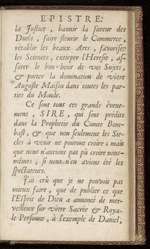 EPISTRE.
la Justice, bannir la fureur des
Duels, faire fleurir le Commerce,
rétablir les beaux Arts, favoriser
les Sciences, extirper l'Heresie, as-
seurer le bon-heur de vos Sujets,
& porter la domination de vôtre
Auguste Maison dans toutes les par-
ties du Monde.
Ce sont tous ces grands évene-
mens, SIRE, qui sont predits
dans la Prophetie du Comte Bom-
bast, & que non seulement les Sie-
cles à venir ne pouront croire; mais
que nous n'aurions pas pû croire nous-
mêmes, si nous n'en avions été les
spectateurs.
J'ai crû que je ne pouvois pas
mieux faire, que de publier ce que
l'Esprit de Dieu a annoncé de mer-
veilleux sur vôtre Sacrée & Roya-
le Personne, à l'exemple de Daniel,